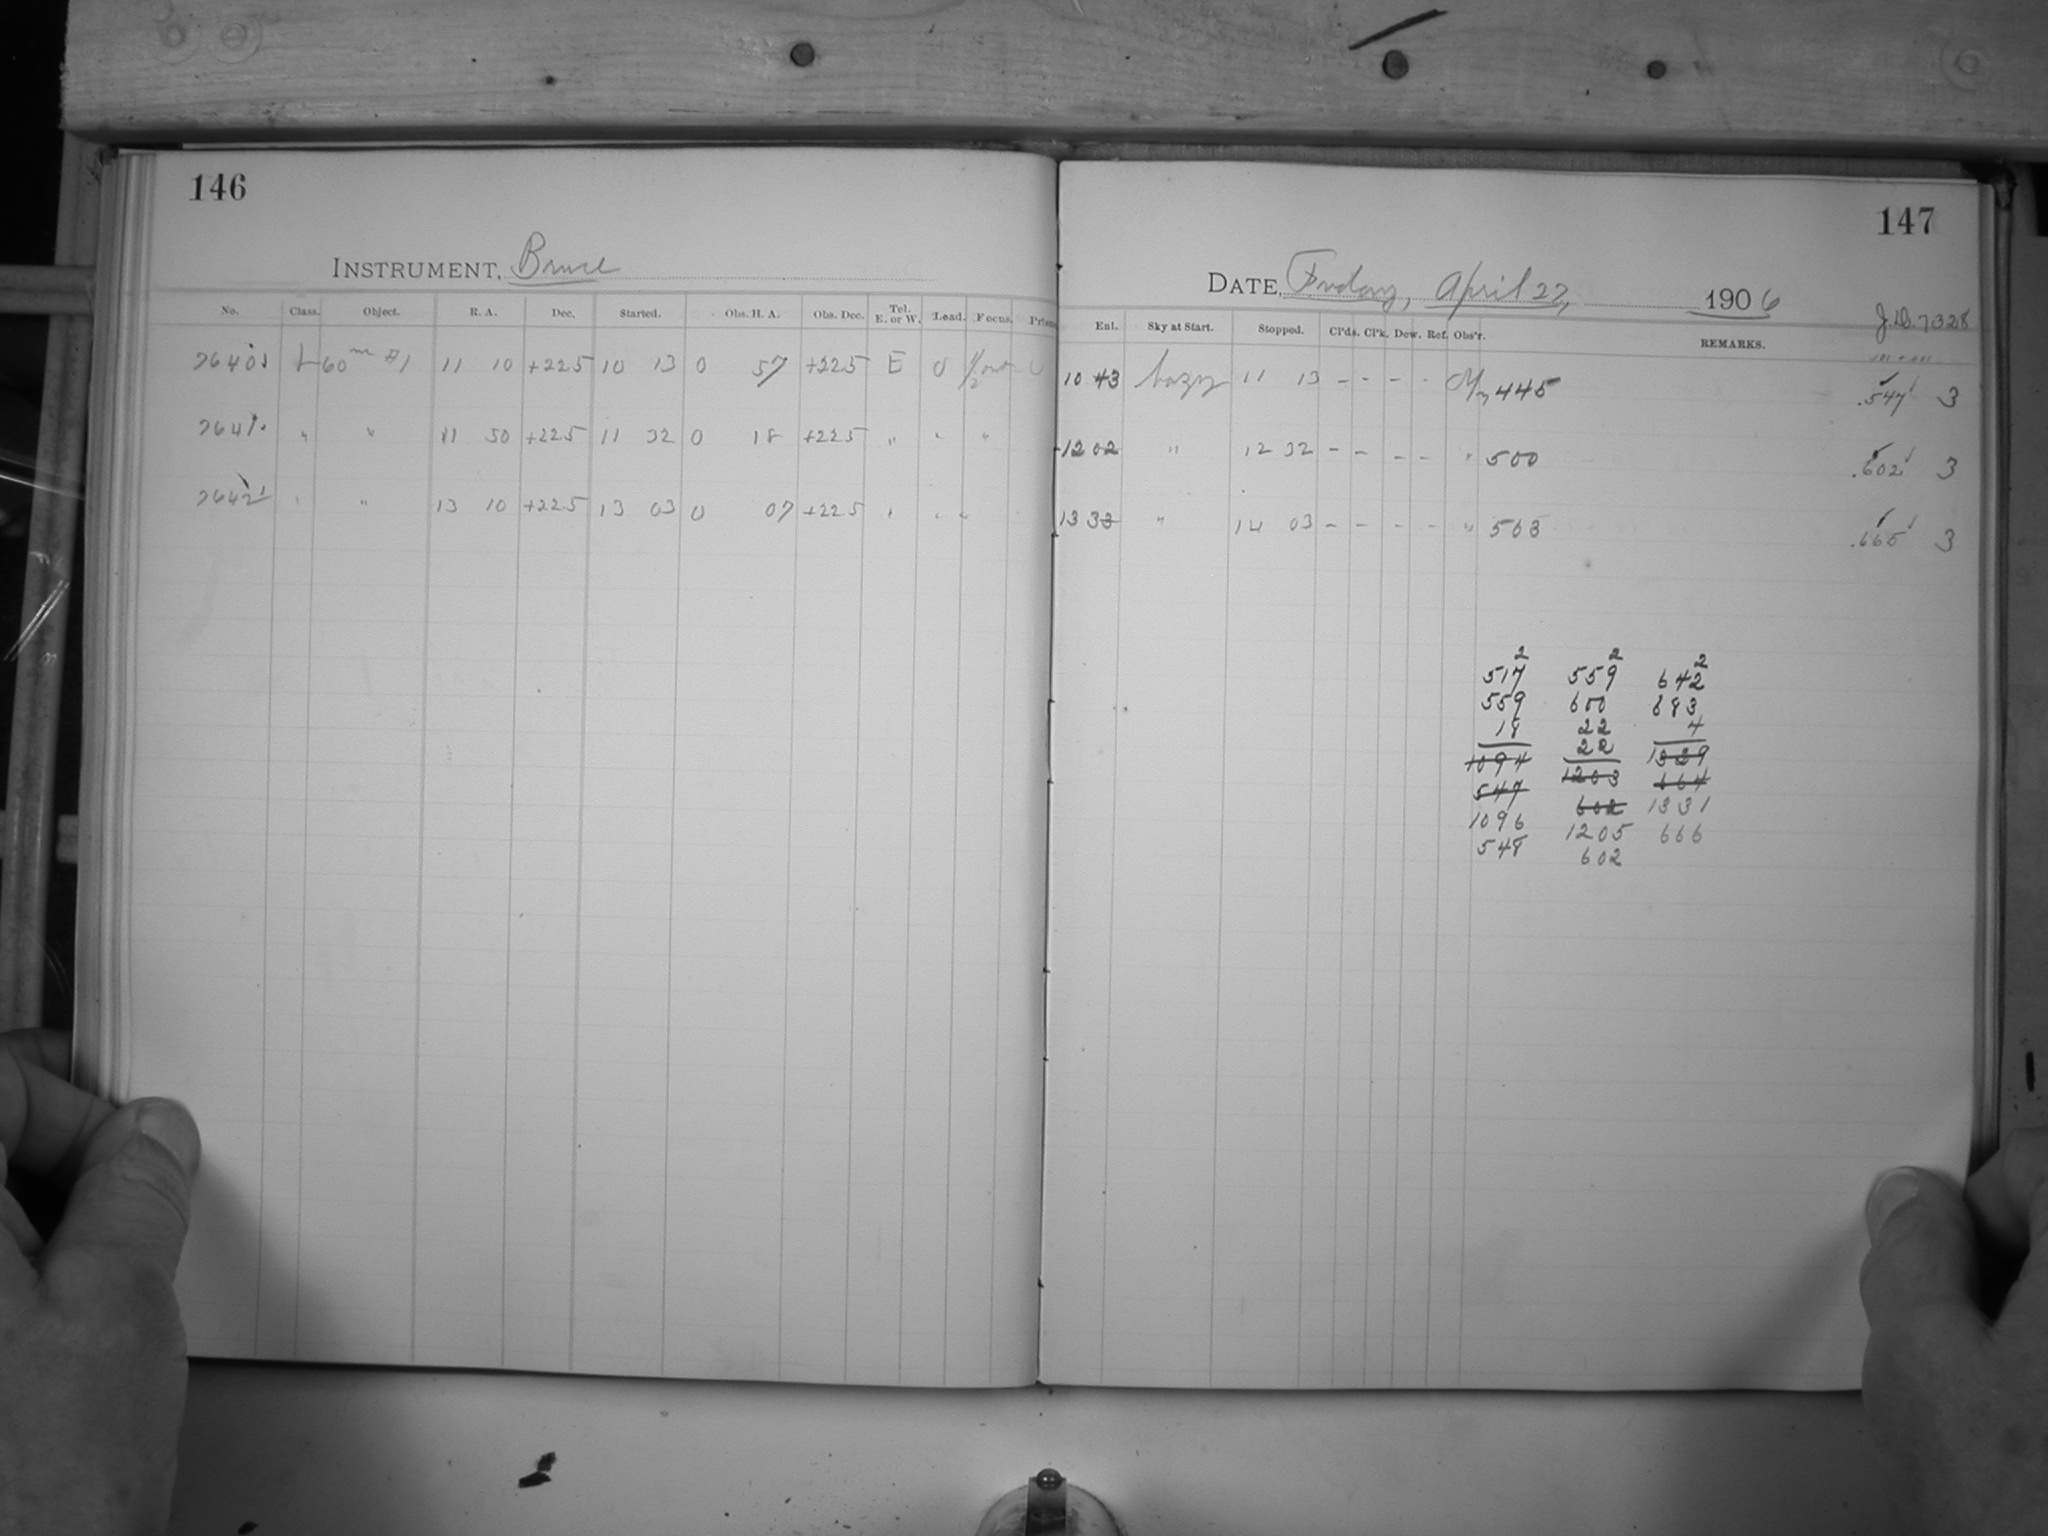 146
INSTRUMENT, Bruce
No. Class. Object. R. A. Dec. Started. Obs. H. A. Obs. Dec. Tel. E. or W. Lead. Focus. Prism.
7640 L 60m #1 11 10 +22.5 10 13 0 57 +22.5 E 0
7641 " " 11 50 +22.5 11 32 0 18 +22.5 " " "
7642 " " 13 10 +22.5 13 03 0 07 +22.5 " " "
147
DATE, Friday, April 27, 1906
J.D. 7328
Enl. Sky at Start. Stopped. Cl'ds. Cl'k. Dew. Ref. Obs'r. REMARKS.
10 43 hazy 11 13 - - - - 445 .547 3
12 02 " 12 32 - - - - " 500 .602 3
13 33 " 14 03 - - - - " 563 .665 3
2 2 2
517 559 642
559 600 683
18 22 4
22
1094 1203 1329
547 602 664
1096 1205 1331
548 602 666